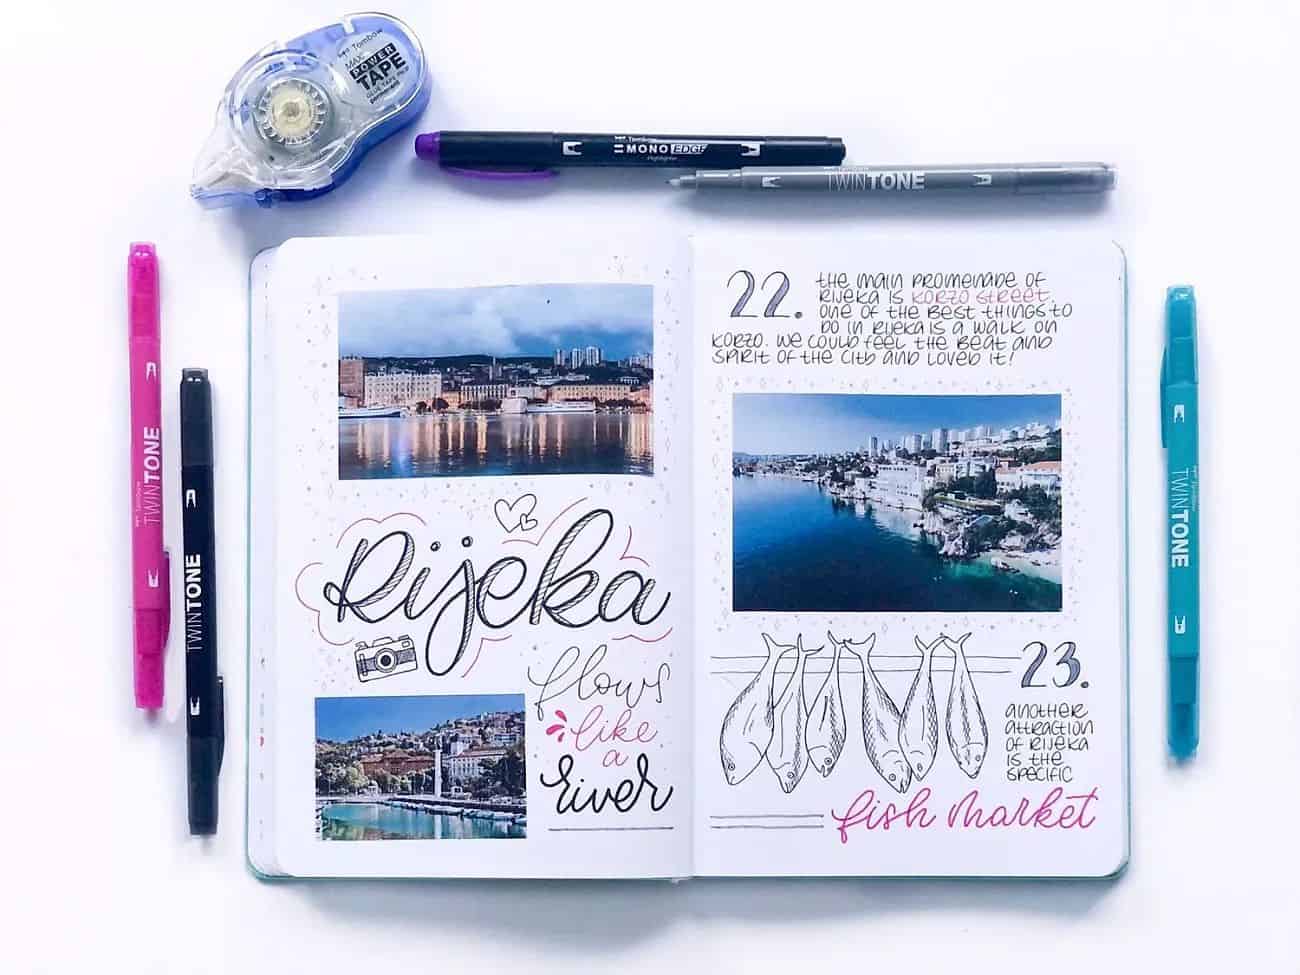 Tombow
MAX
POWER
TAPE
GLUE TAPE
permanent
Tombow
MONO EDGE
Highlighter
TWINTONE
Tombow
TWINTONE
TWINTONE
Rijeka
flows
like
a
river
22. the main promenade of
Rijeka is Korzo Street.
One of the best things to
do in Rijeka is a walk on
Korzo. We could feel the beat and
spirit of the city and loved it!
23.
another
attraction
of Rijeka
is the
specific
fish market
Tombow
TWINTONE